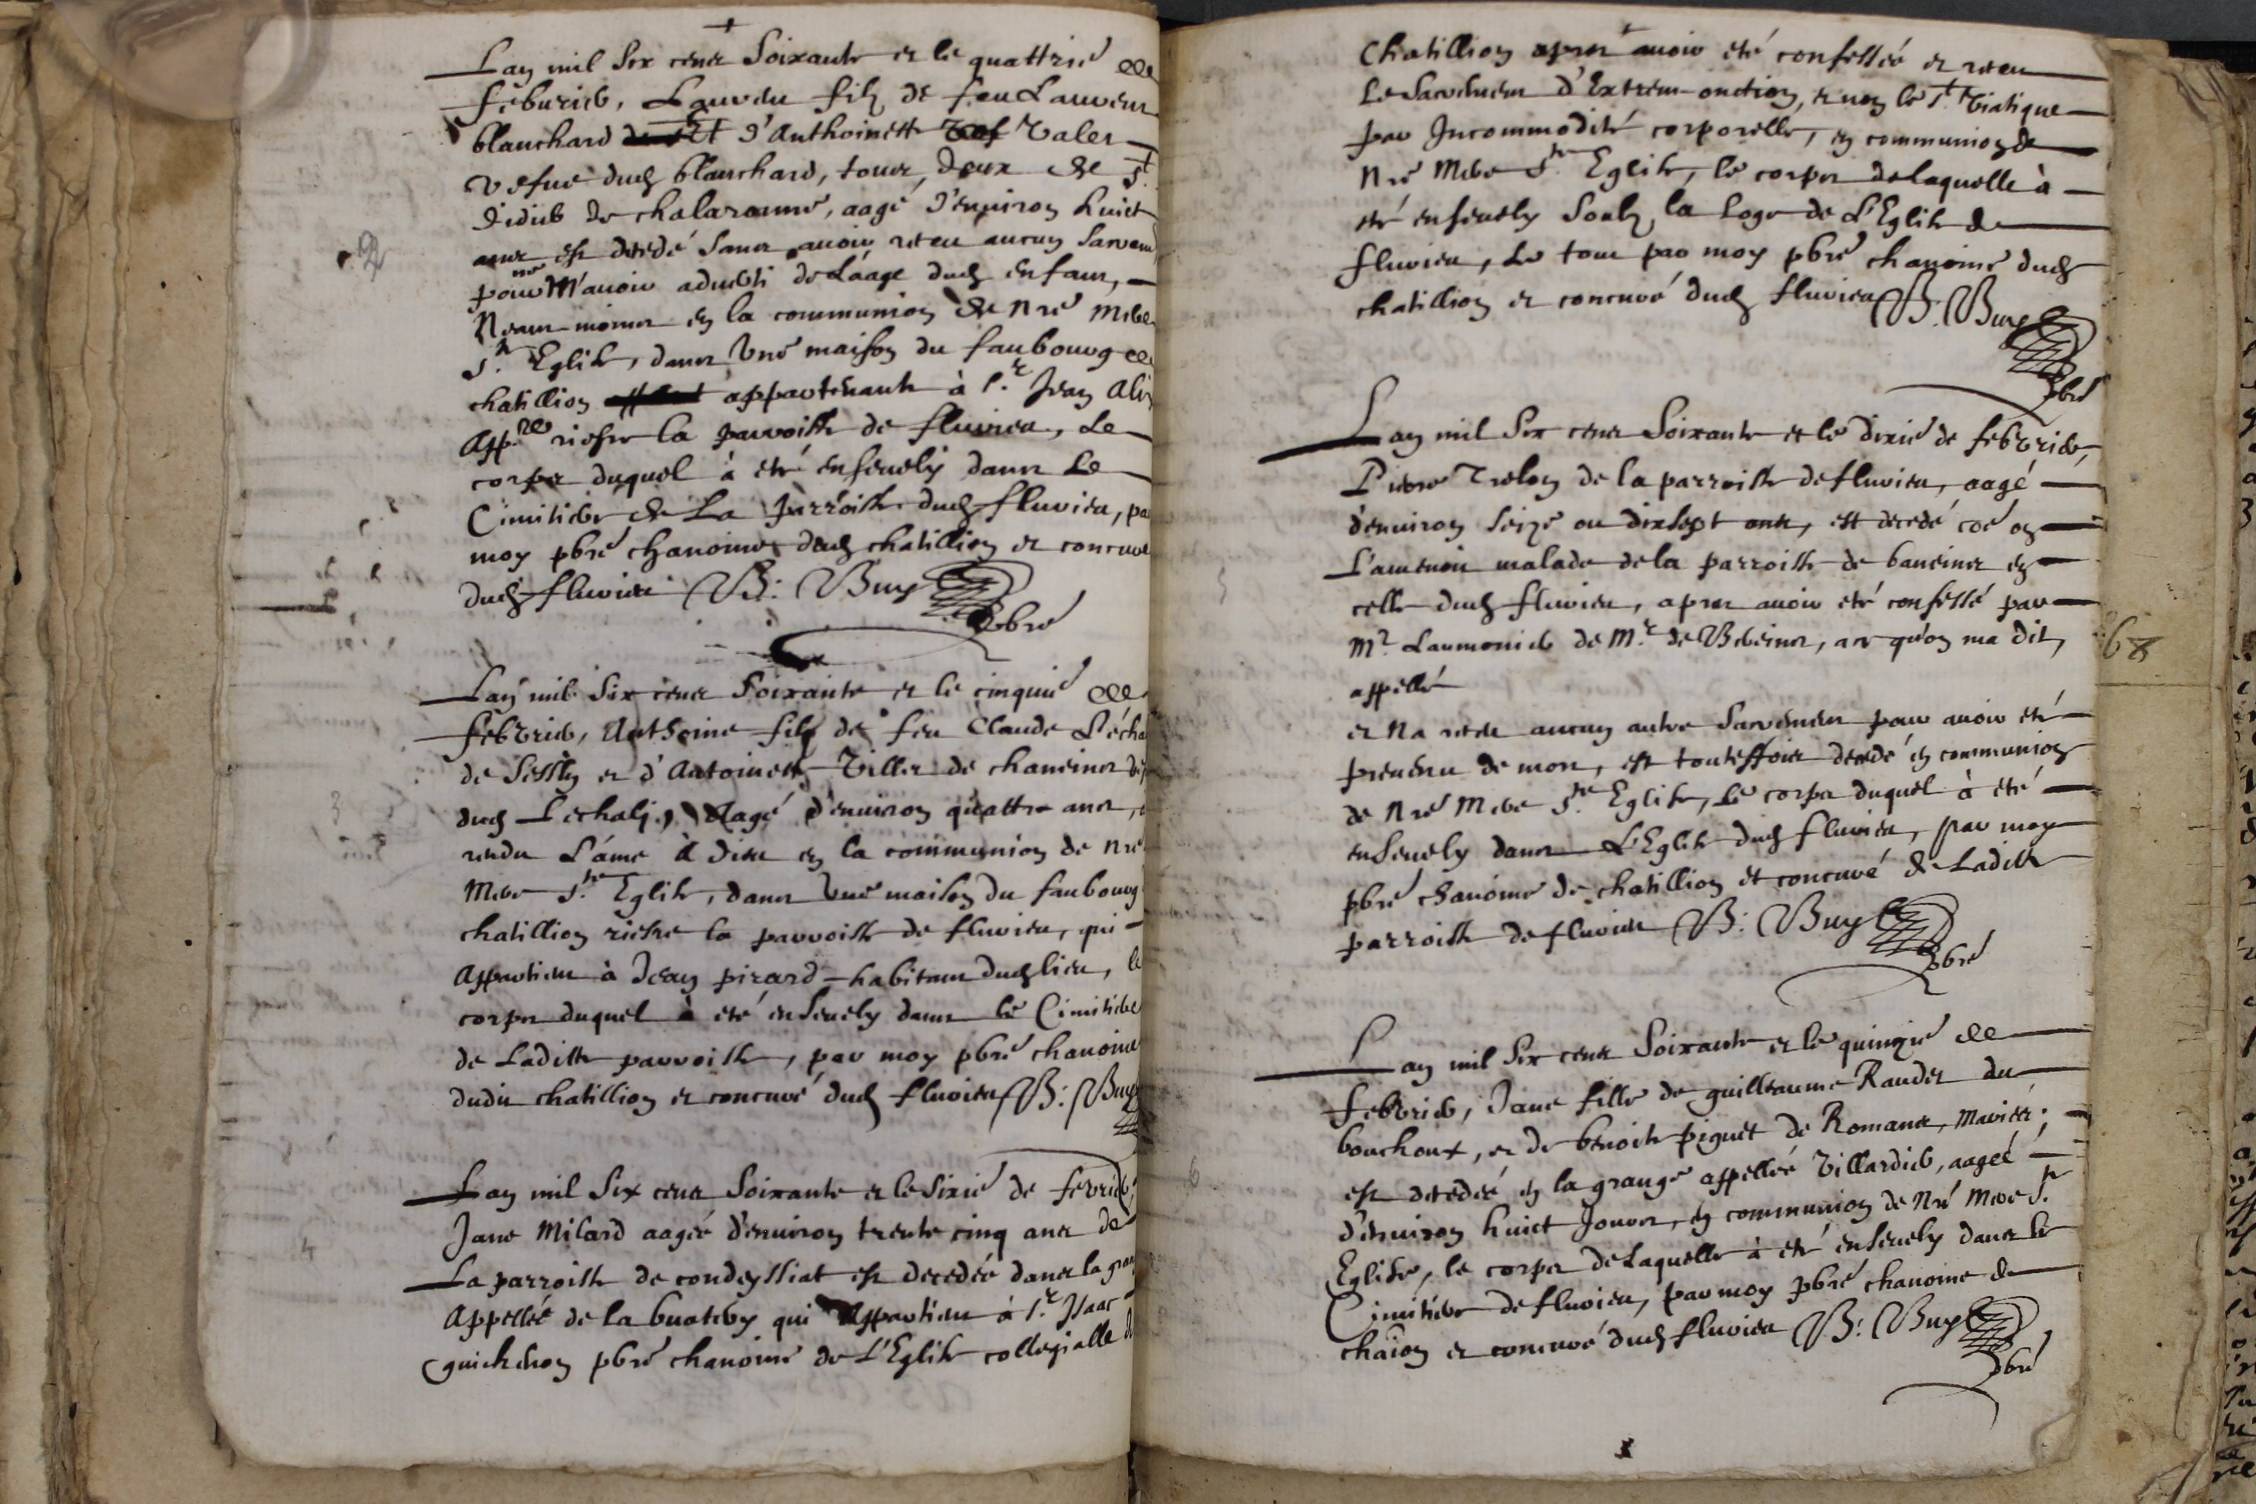 Lan mil Six cens Soixante et le quattrie de
feburier, Lauren filz de feu Laurens
blanchard et d'Anthoinette Valer
vefue dud blanchard, tous deux de St
didier de chalaronne, aagé d'enuiron huict
ans est decedé sans auoir receu aucun Sacrem
pour ne m'auoir aduerti de L'aage dud enfant,
Neantmoins en la communion de nre mere
Ste Eglise, dans Une maison du faubourg de
chatillion appartenante à Sr Jean
riesre la parroisse de fluuieu, Le
corps duquel à eté enseuely dans Le
Cimitiere de La parroisse dud fluuieu, pa
moy pbre chanoine dud chatillion et concuré
dud fluuieu B: Buy
pbre
Lan mil Six cens Soixante et le cinquie de
febvrier, Anthoine filz de feu Claude
de Sessy et d'Antoinette Viller de chaneins
dud Lechaly, Aagé d'enuiron quattre ans,
rendu L'áme à dieu en la communion de nre
Mere Ste Eglise, dans Une maison du faubourg
chatillion riesre la parroisse de fluuieu, qui
Appartient à Jean pirard habitant dud lieu, le
corps duquel à eté enseuely dans le Cimitiere
de Laditte parroisse, par moy pbre chanoine
dudit chatillion et concuré dud fluuieu B: Buy
Lan mil Six cens Soixante et le Sixie de fevrier,
Jane Milard aagée d'enuiron trente cinq ans de
La parroisse de condeyssiat est decedée dans la gran
Appellée de la buatery qui Appartient à Sr Isaac
guichenon pbre chanoine de L'Eglise collegialle de
2
3
4
Chatillion apres auoir eté confessée et receu
Le Sacrement d'Extreme-onction, et non le St Viatique
par Incommodité corporelle, en communion de
Nre Mere Ste Eglise, le corps de laquelle à
eté enseuely Soubz la Loge de L'Eglise de
fluuieu, Le tout par moy pbre chanoine dud
chatillion et concuré dud fluuieu B: Buy
pbre
Lan mil Six cens Soixante et le dixie de febvrier,
Pierre Trelon de la parroisse de fluuieu, aagé
d'enuiron seize ou dixsept ans, est decedé coe on
L'amenoit malade de la parroisse de baneins en
celle dud fluuieu, apres auoir eté confessé par
Mr Laumonier de Mr de Beseins, ace qu'on ma dit,
appellé
et Na receu aucun autre Sacrement pour auoir eté
preuenu de mort, est touteffois decedé en communion
de Nre Mere Ste Eglise, Le corps duquel à eté
enseuely dans L'Eglise dud fluuieu, par moy
pbre chanoine de chatillion et concuré de Laditte
parroisse de fluuieu B: Buy
pbre
Lan mil Six cens Soixante et le quinzie de
febvrier, Jane fille de guilleaume Raudet du
bouchoux, et de benoite piguet de Romans, mariez;
est decedée en la grange appellée Villardier, aagée
d'enuiron huict Jours, en communion de Nre Mere Ste
Eglise, le corps de Laquelle à eté enseuely dans le
Cimitiere de fluuieu, par moy pbre chanoine de
chaion et concuré dud fluuieu B: Buy
pbre
5
6
68